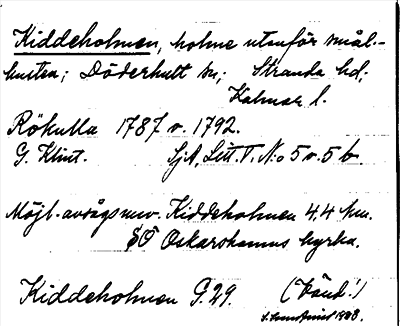 Kiddeholmen, holme utanför smål.-
kusten; Döderhult sn; Stranda hd;
Kalmar l.
Rökulla 1787 o. 1792.
G. Klint. SjA, Litt. V, No 5 o. 5 b.
Möjl. avvägs Kiddeholmen 4.4 km.
SO Oskarshamns kyrka.
Kiddeholmen G. 29. ("bänd")
1938.